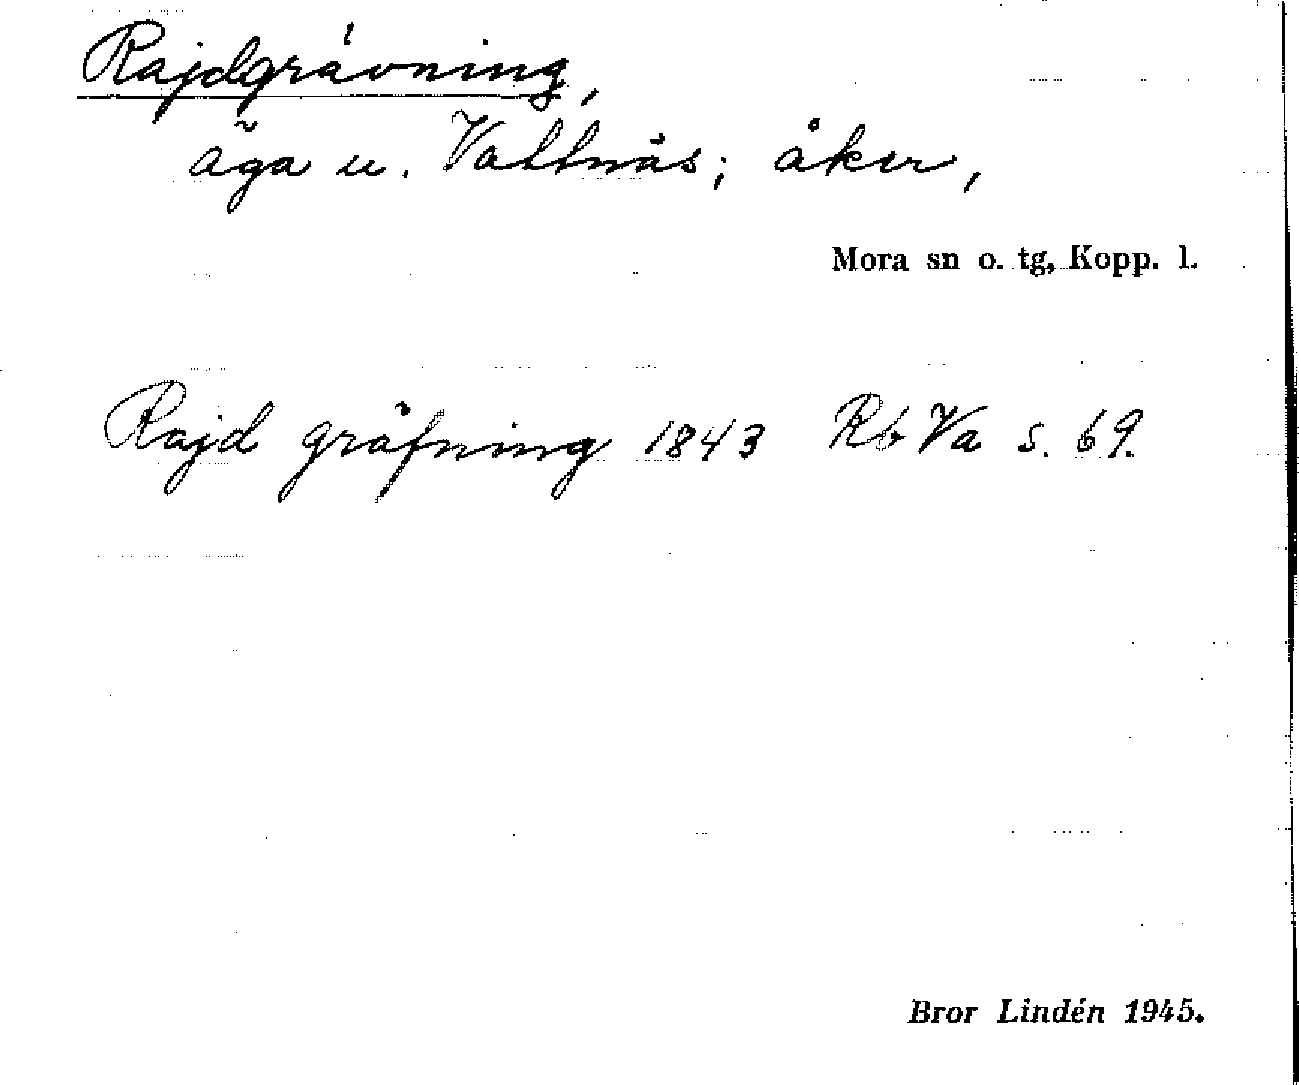 Rajdgrävning,
äga u. Vattnäs; åker,
Mora sn o. tg, Kopp. l.
Rajd gräfning 1843 Rb Va s. 69.
Bror Lindén 1945.